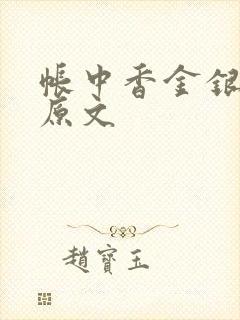 帳中香金銀
原文
趙寶玉